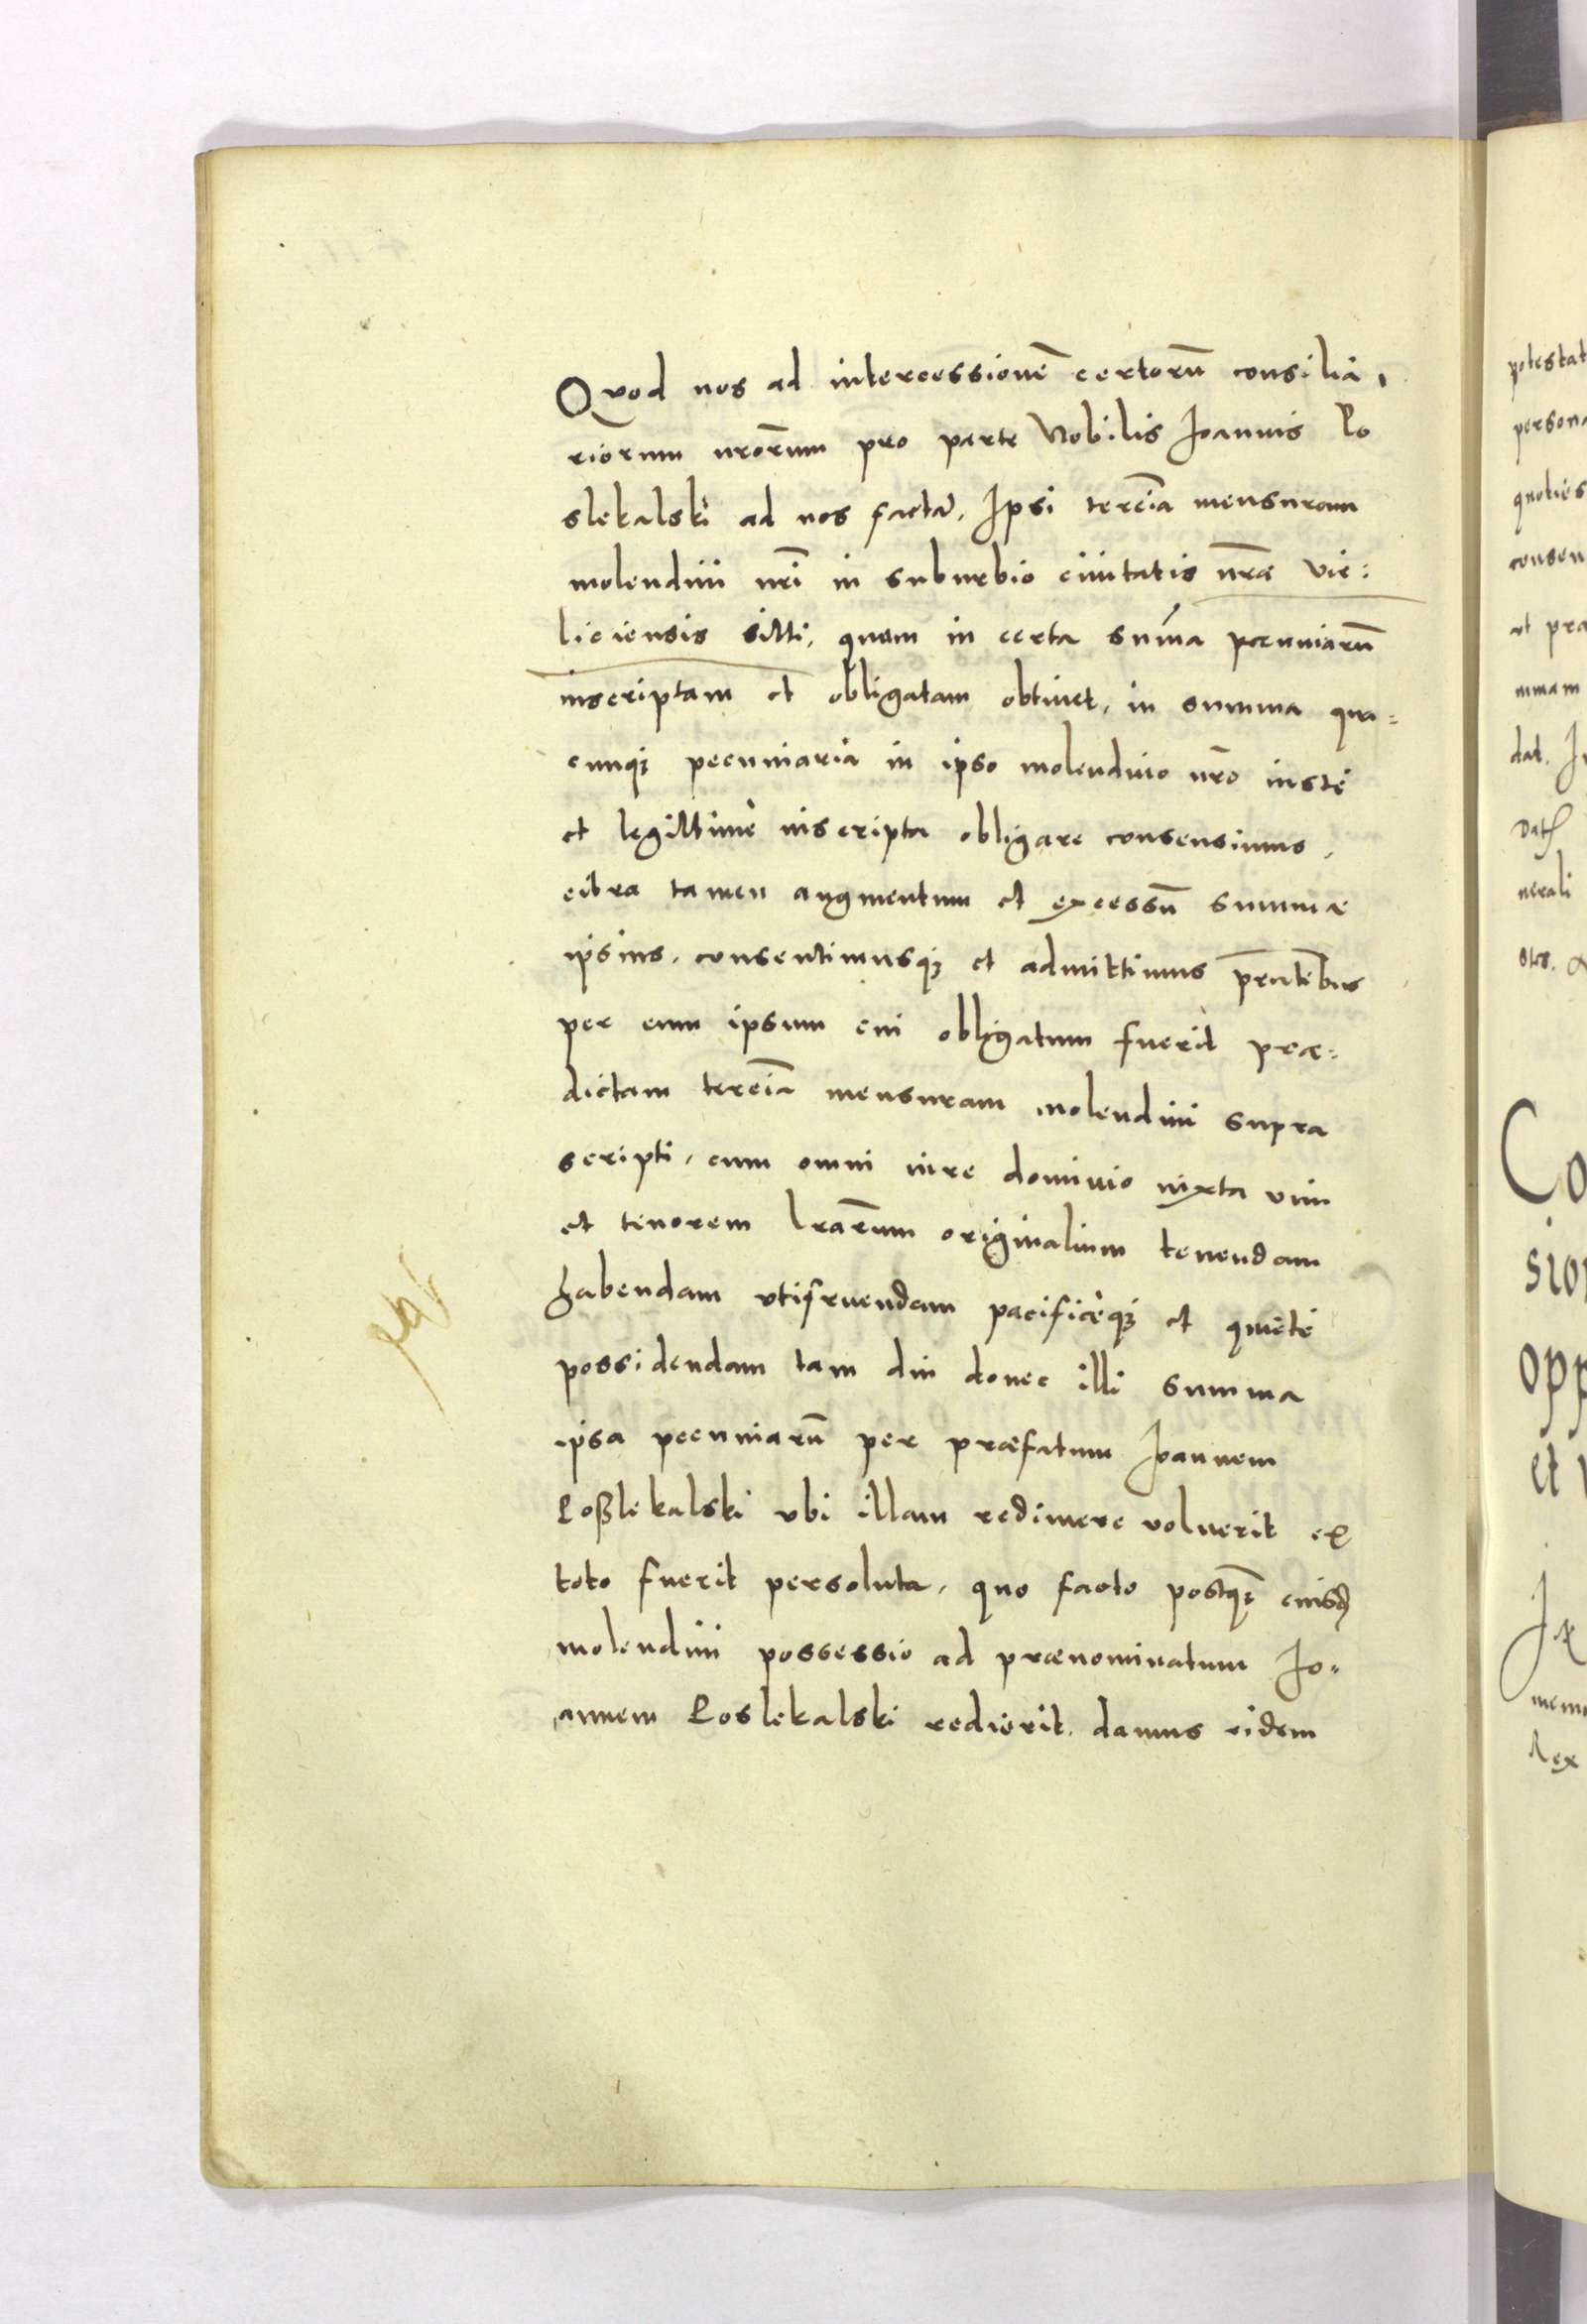 Quod nos ad intercessionē certorū consilia,
riorum nr̄orum pro parte Nobilis Joannis Ko
slekalski ad nos factā, Ipsi terciā mensuram
molendini nr̄i in suburbio ciuitatis nr̄ae vie:
liciensis sitti, quam in certa sum̄a pecuniarū
inscriptam et obligatam obtinet, in summa qua:
cunq; pecuniaria in ipso molendino nr̄o iuste
et legittime inscripta obligare consensimus,
citra tamen augmentum et excessū summae
ipsius, consentimusq; et admittimus pr̄ntibus
per eum ipsum cui obligatum fuerit prae:
dictam terciā mensuram molendini supra
scripti, cum omni iure dominio iuxta vim
et tenorem l̄rarum originalium tenendam
habendam vtifruendam pacificeq; et quiete
possidendam tam diu donec illi summa
ipsa pecuniarū per praefatum Joannem
Koßlekalski vbi illam redimere voluerit ex
toto fuerit persoluta, quo facto postq; eiusd
molendini possessio ad praenominatum Jo-
annem Koslekalski redierit, damus eidem
potestat
persona
quoties
consen
ut pra
mmam
dat. J
Dat
nerali
otes.
Co
sion
opp
et
memo
Rex